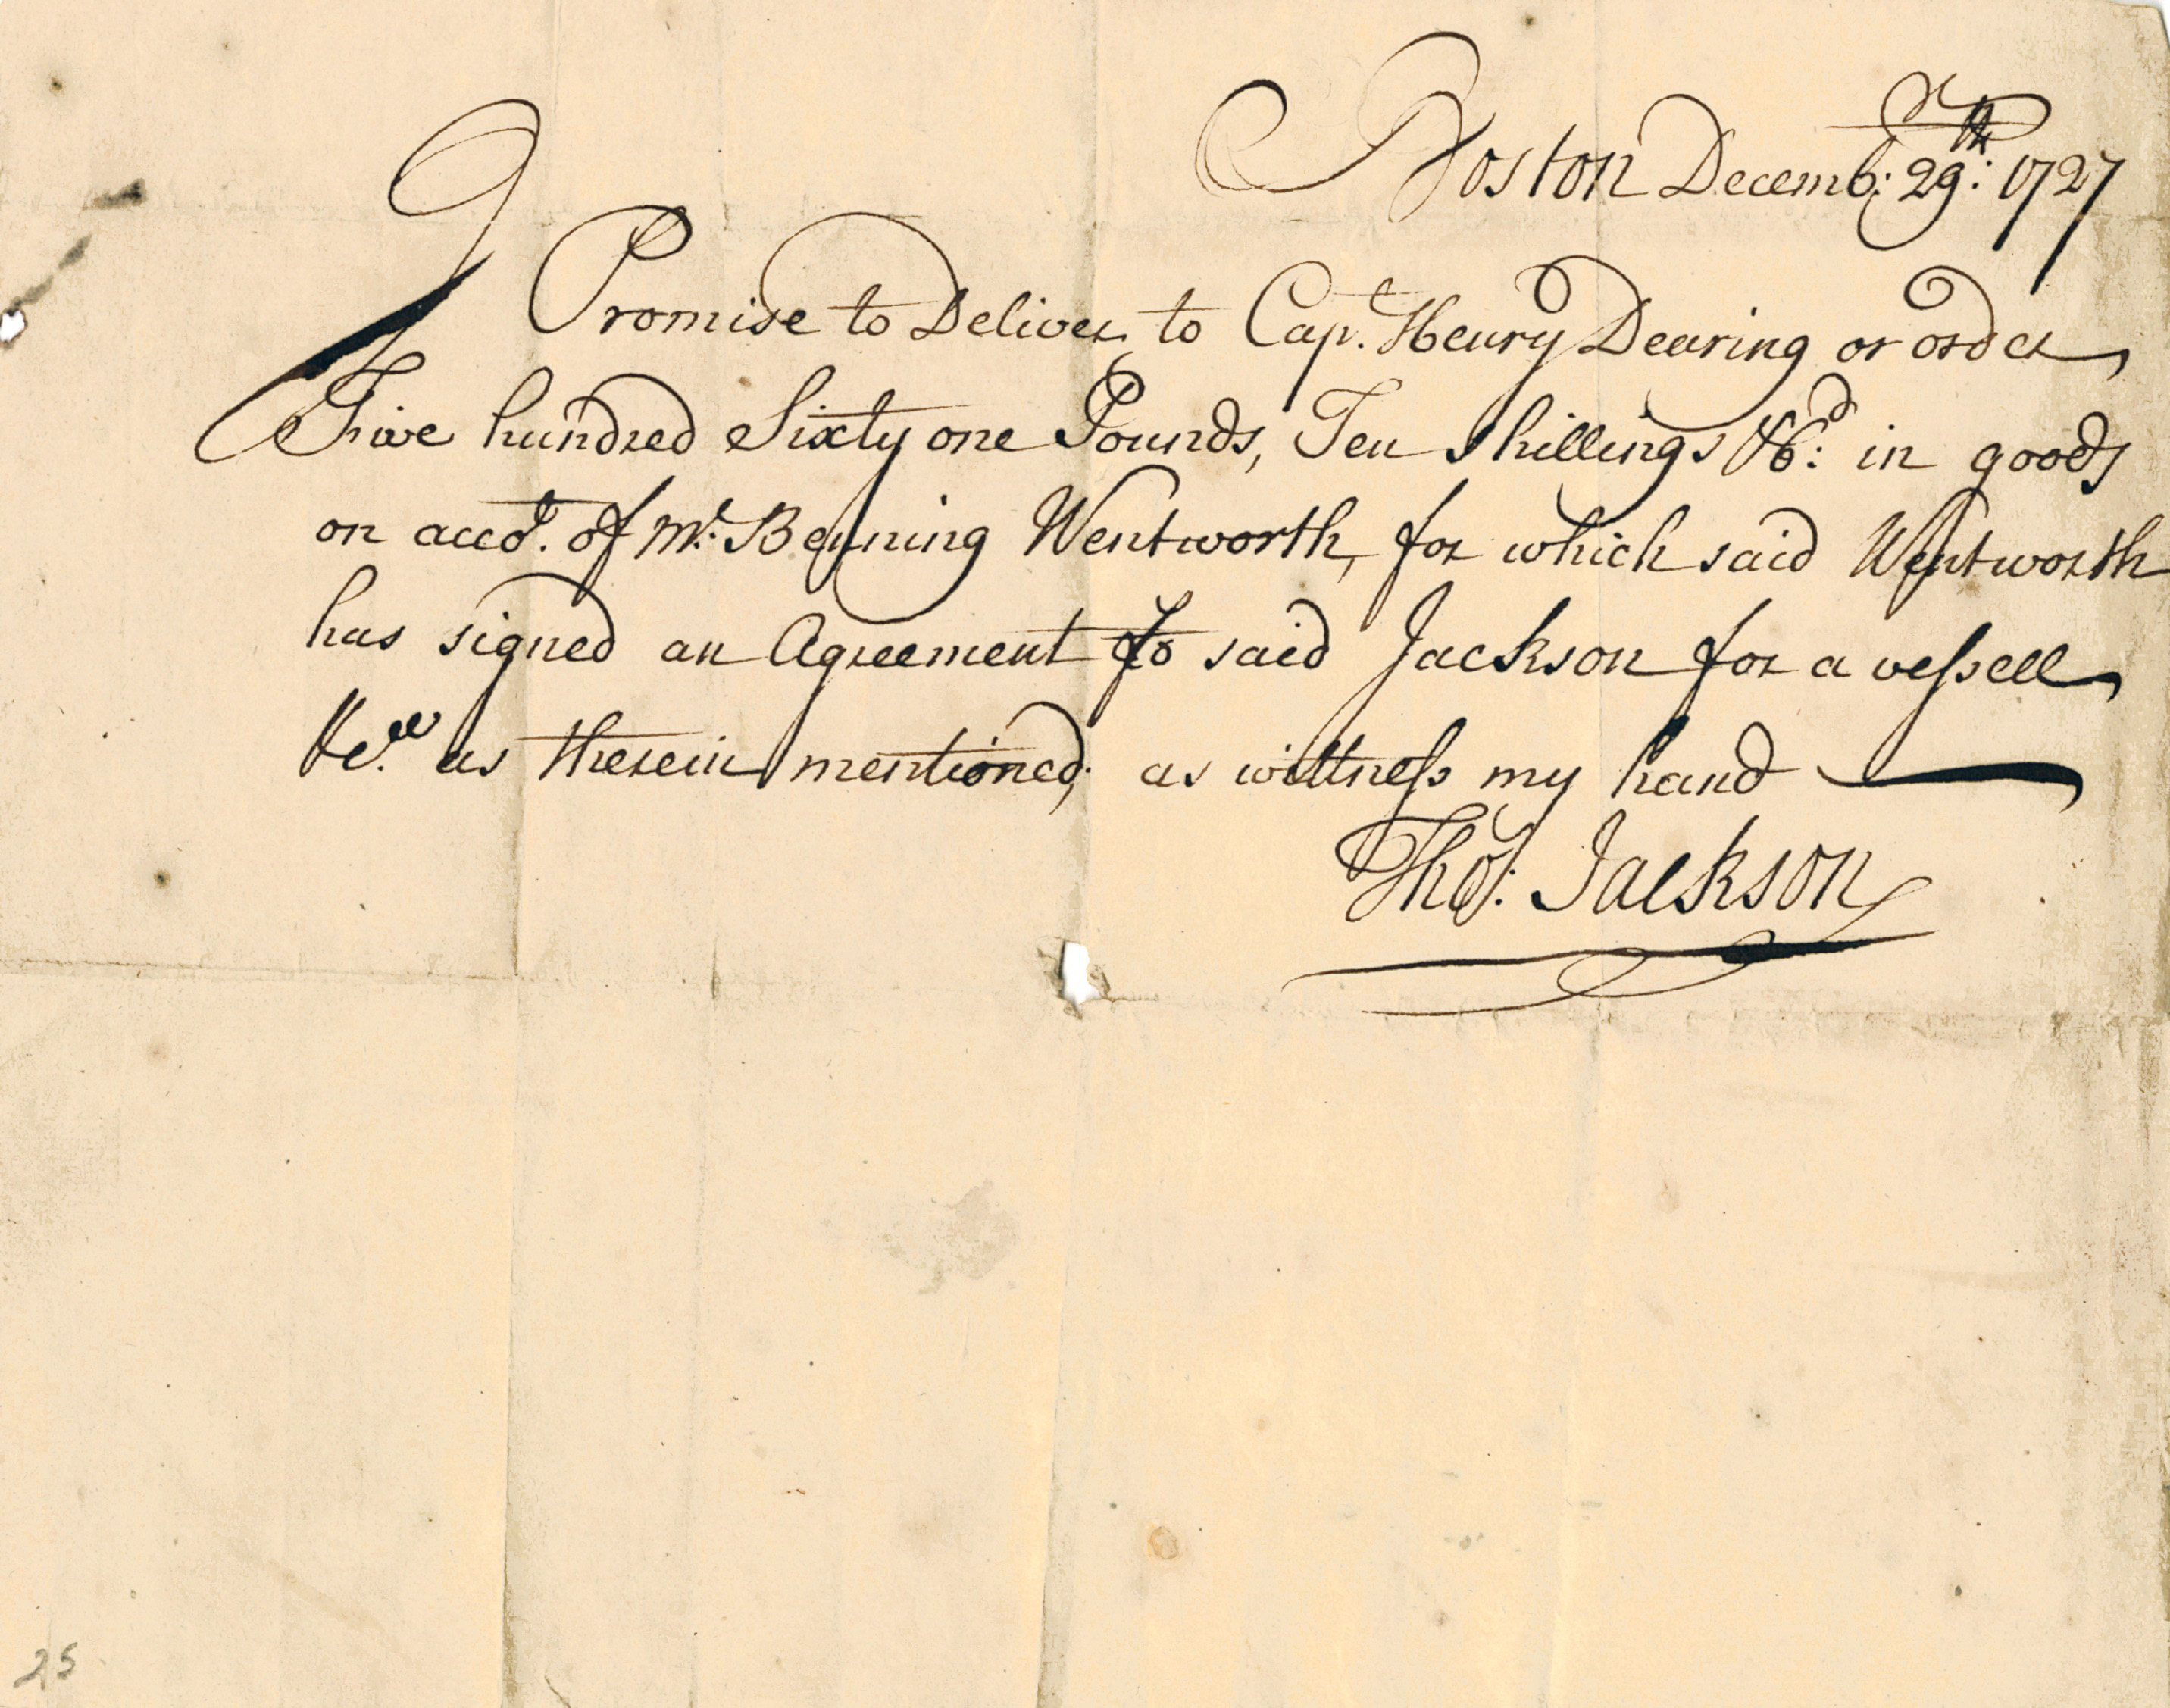 Boston Decembr: 29th: 1727
I Promise to Deliver to Capt. Henry Deering or order
Five hundred Sixty one Pounds, Ten Shillings &6d: in goods
on accot. of Mr. Benning Wentworth, for which said Wentworth
has signed an Agreement to said Jackson for a vessell
&c.a as therein mentioned; as wittness my hand
Thos. Jackson
25